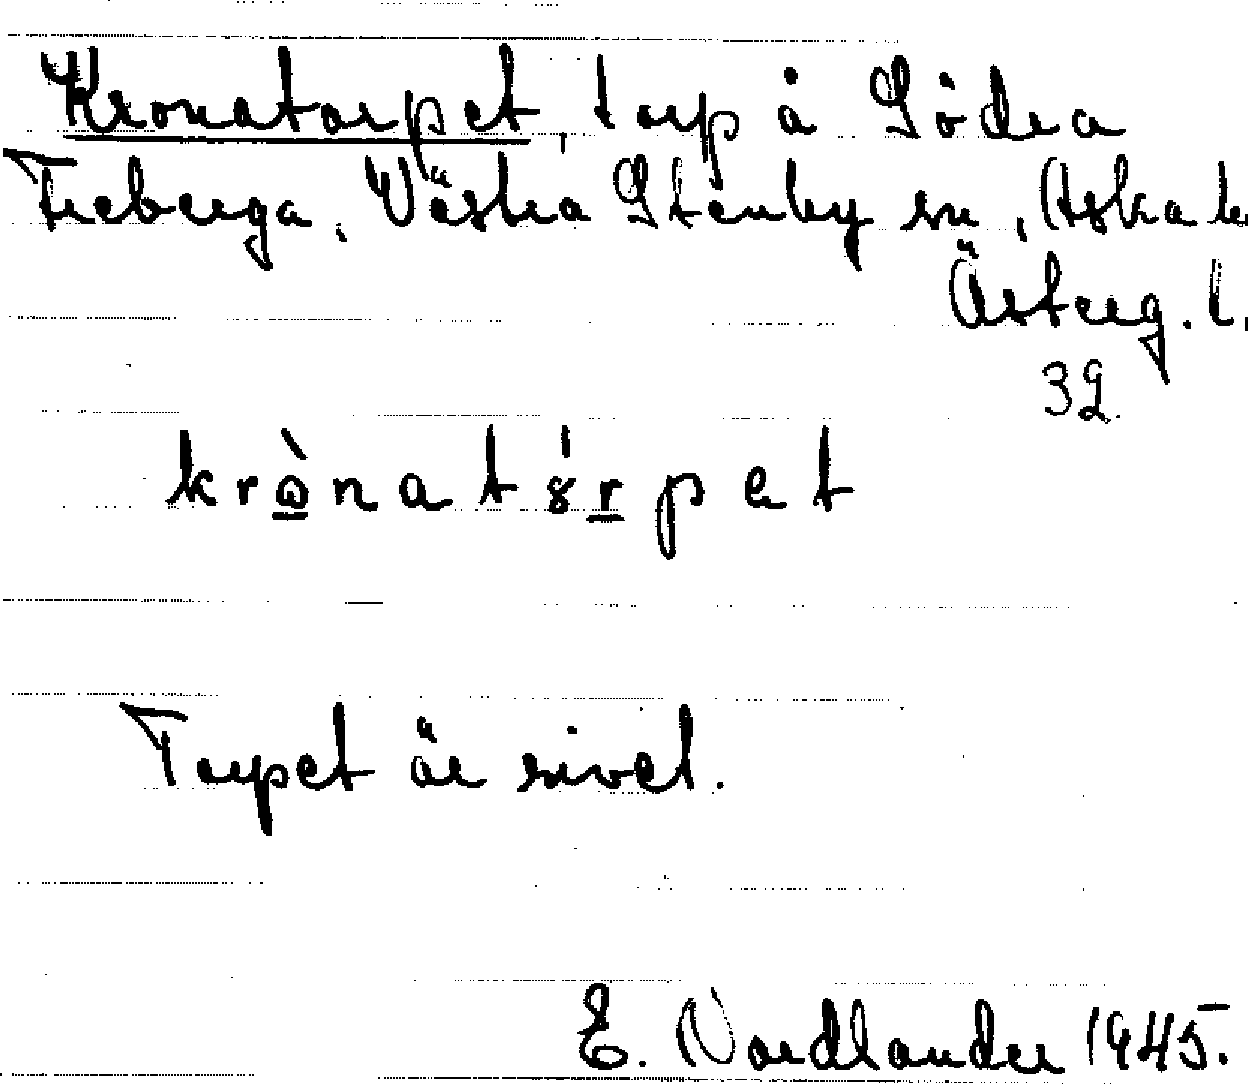 Kronatorpet, torp å Södra
Freberga, Västra Stenby sn, Aska h.
Österg. l.
32.
krònatórpet
Torpet är rivet.
E. Nordlander 1945.